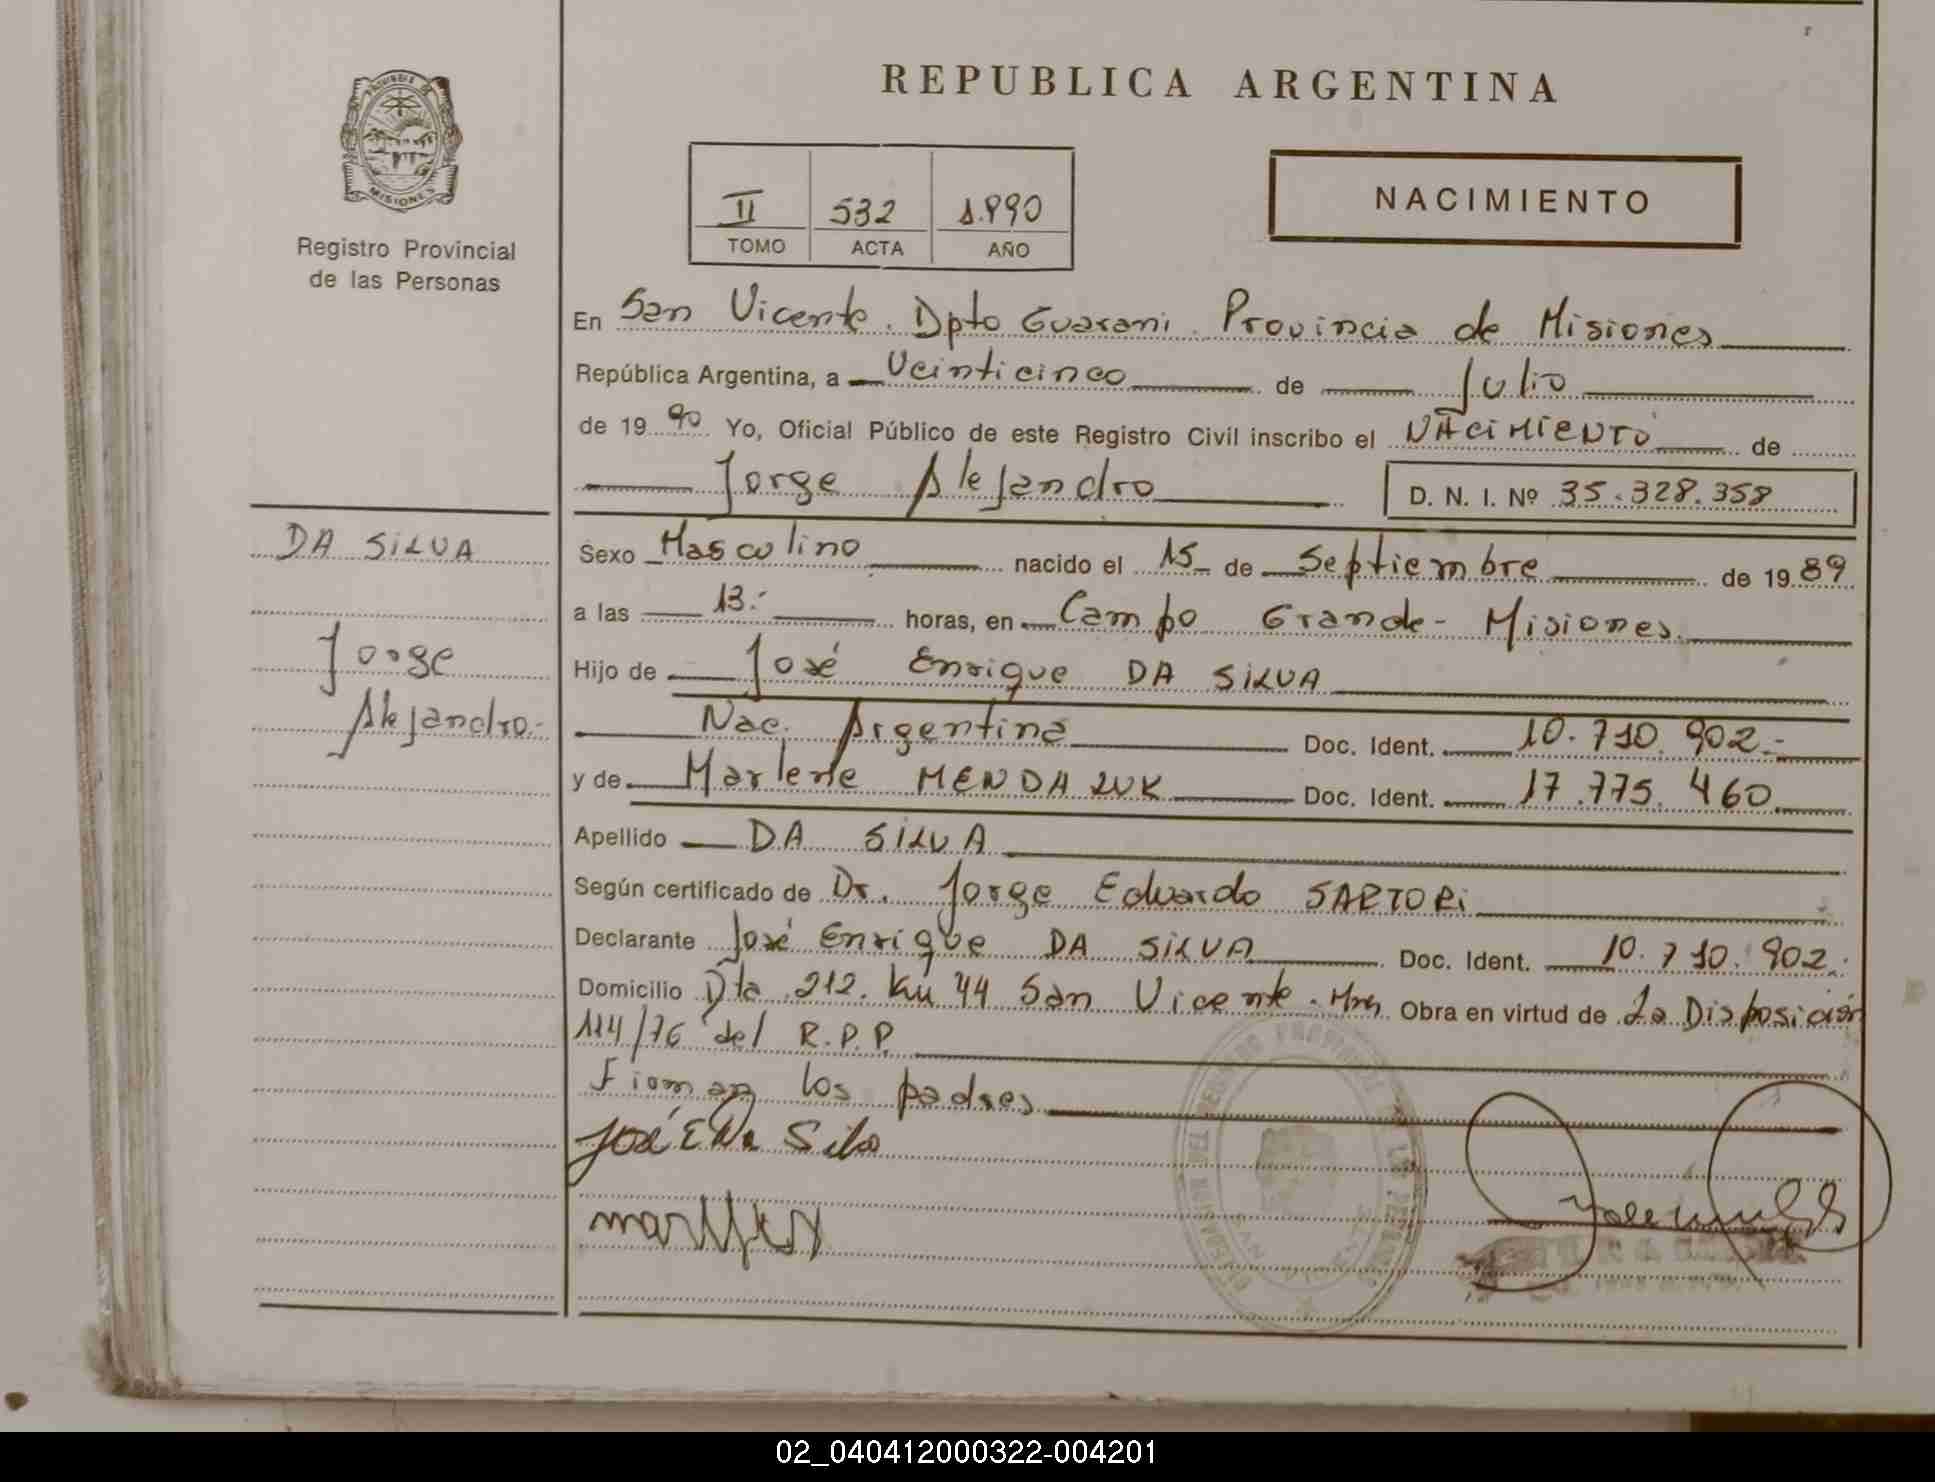 REPUBLICA ARGENTINA
MISIONES
Registro Provincial
de las Personas
II 532 1.990
TOMO ACTA AÑO
NACIMIENTO
En San Vicente. Dpto Guarani. Provincia de Misiones
República Argentina, a Veinticinco de Julio
de 19 90 Yo, Oficial Público de este Registro Civil inscribo el NACIMIENTO de
Jorge Alejandro D. N. I. Nº 35.328.358
DA SILVA
Jorge
Alejandro.-
Sexo Masculino nacido el 15 de Septiembre de 19 89
a las 13.- horas, en Campo Grande - Misiones.
Hijo de José Enrique DA SILVA
Nac. Argentina Doc. Ident. 10.710.902.-
y de Marlene MENDA ZUK Doc. Ident. 17.775.460
Apellido DA SILVA
Según certificado de Dr. Jorge Eduardo SARTORI
Declarante José Enrique DA SILVA Doc. Ident. 10.710.902.
Domicilio Dta 212. Km 44 San Vicente. Mnes Obra en virtud de La Disposición
114/76 del R.P.P.
Firman los padres
José E Da Silva
02_040412000322-004201